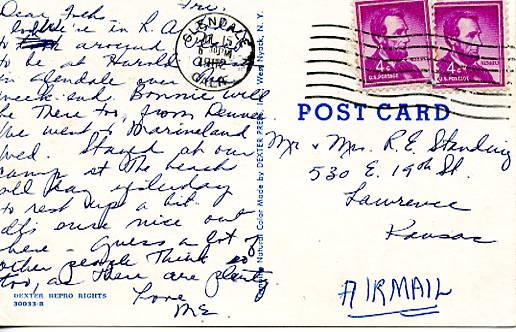 Dear Folks Fri.
We're in L.A.
to look around
to be at Harold
in Glendale over
week-end Bonnie will
be there too, from Denver.
We went to Marineland
Wed. Stayed at our
camp at the beach
all day yesterday
to rest up a bit.
It's sure nice out
here - Guess a lot of
other people think so
too, as there are plenty
Love
M.E.
DEXTER REPRO RIGHTS
30033-B
Natural Color Made by DEXTER PRESS, Inc. West Nyack, N. Y.
GLENDALE
15
PM
CALIF.
4¢
U.S. POSTAGE
4¢
U.S. POSTAGE
POST CARD
Mr & Mrs. R.E. Standing
530 E. 19th St.
Lawrence
Kansas
AIRMAIL